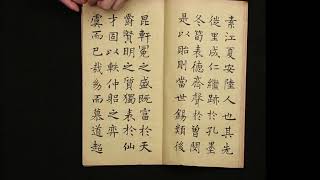 素江夏安陸人也其先
徙里成仁繼跡於孔墨
冬筍表德齊聲於曾閔
是以貽則當世錫類後
昆軒冕之盛既富於天
爵賢明之質獨表於仙
才固以軼仲躬之弈
虞而已哉為而慕道超